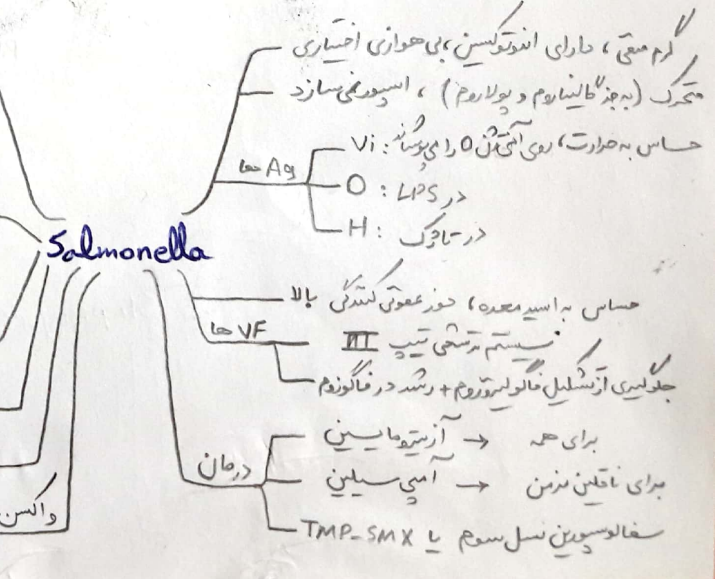 گرم منفی، دارای اندوتوکسین، بی هوازی اختیاری
متحرک (به جز گالیناروم و پولاروم)، اسپور نمی سازد
Ag ها
Vi: حساس به حرارت، روی آنتی ژن O را می پوشاند
O: در LPS
H: در تاژک
Salmonella
حساس به اسید معده، دوز عفونی کنندگی بالا
VF ها
سیستم ترشحی تیپ III
جلوگیری از تشکیل فاگولیزوزوم + رشد در فاگوزوم
درمان
آزیترومایسین → برای همه
آمپی سیلین → برای ناقلین مزمن
سفالوسپورین نسل سوم یا TMP-SMX
واکسن